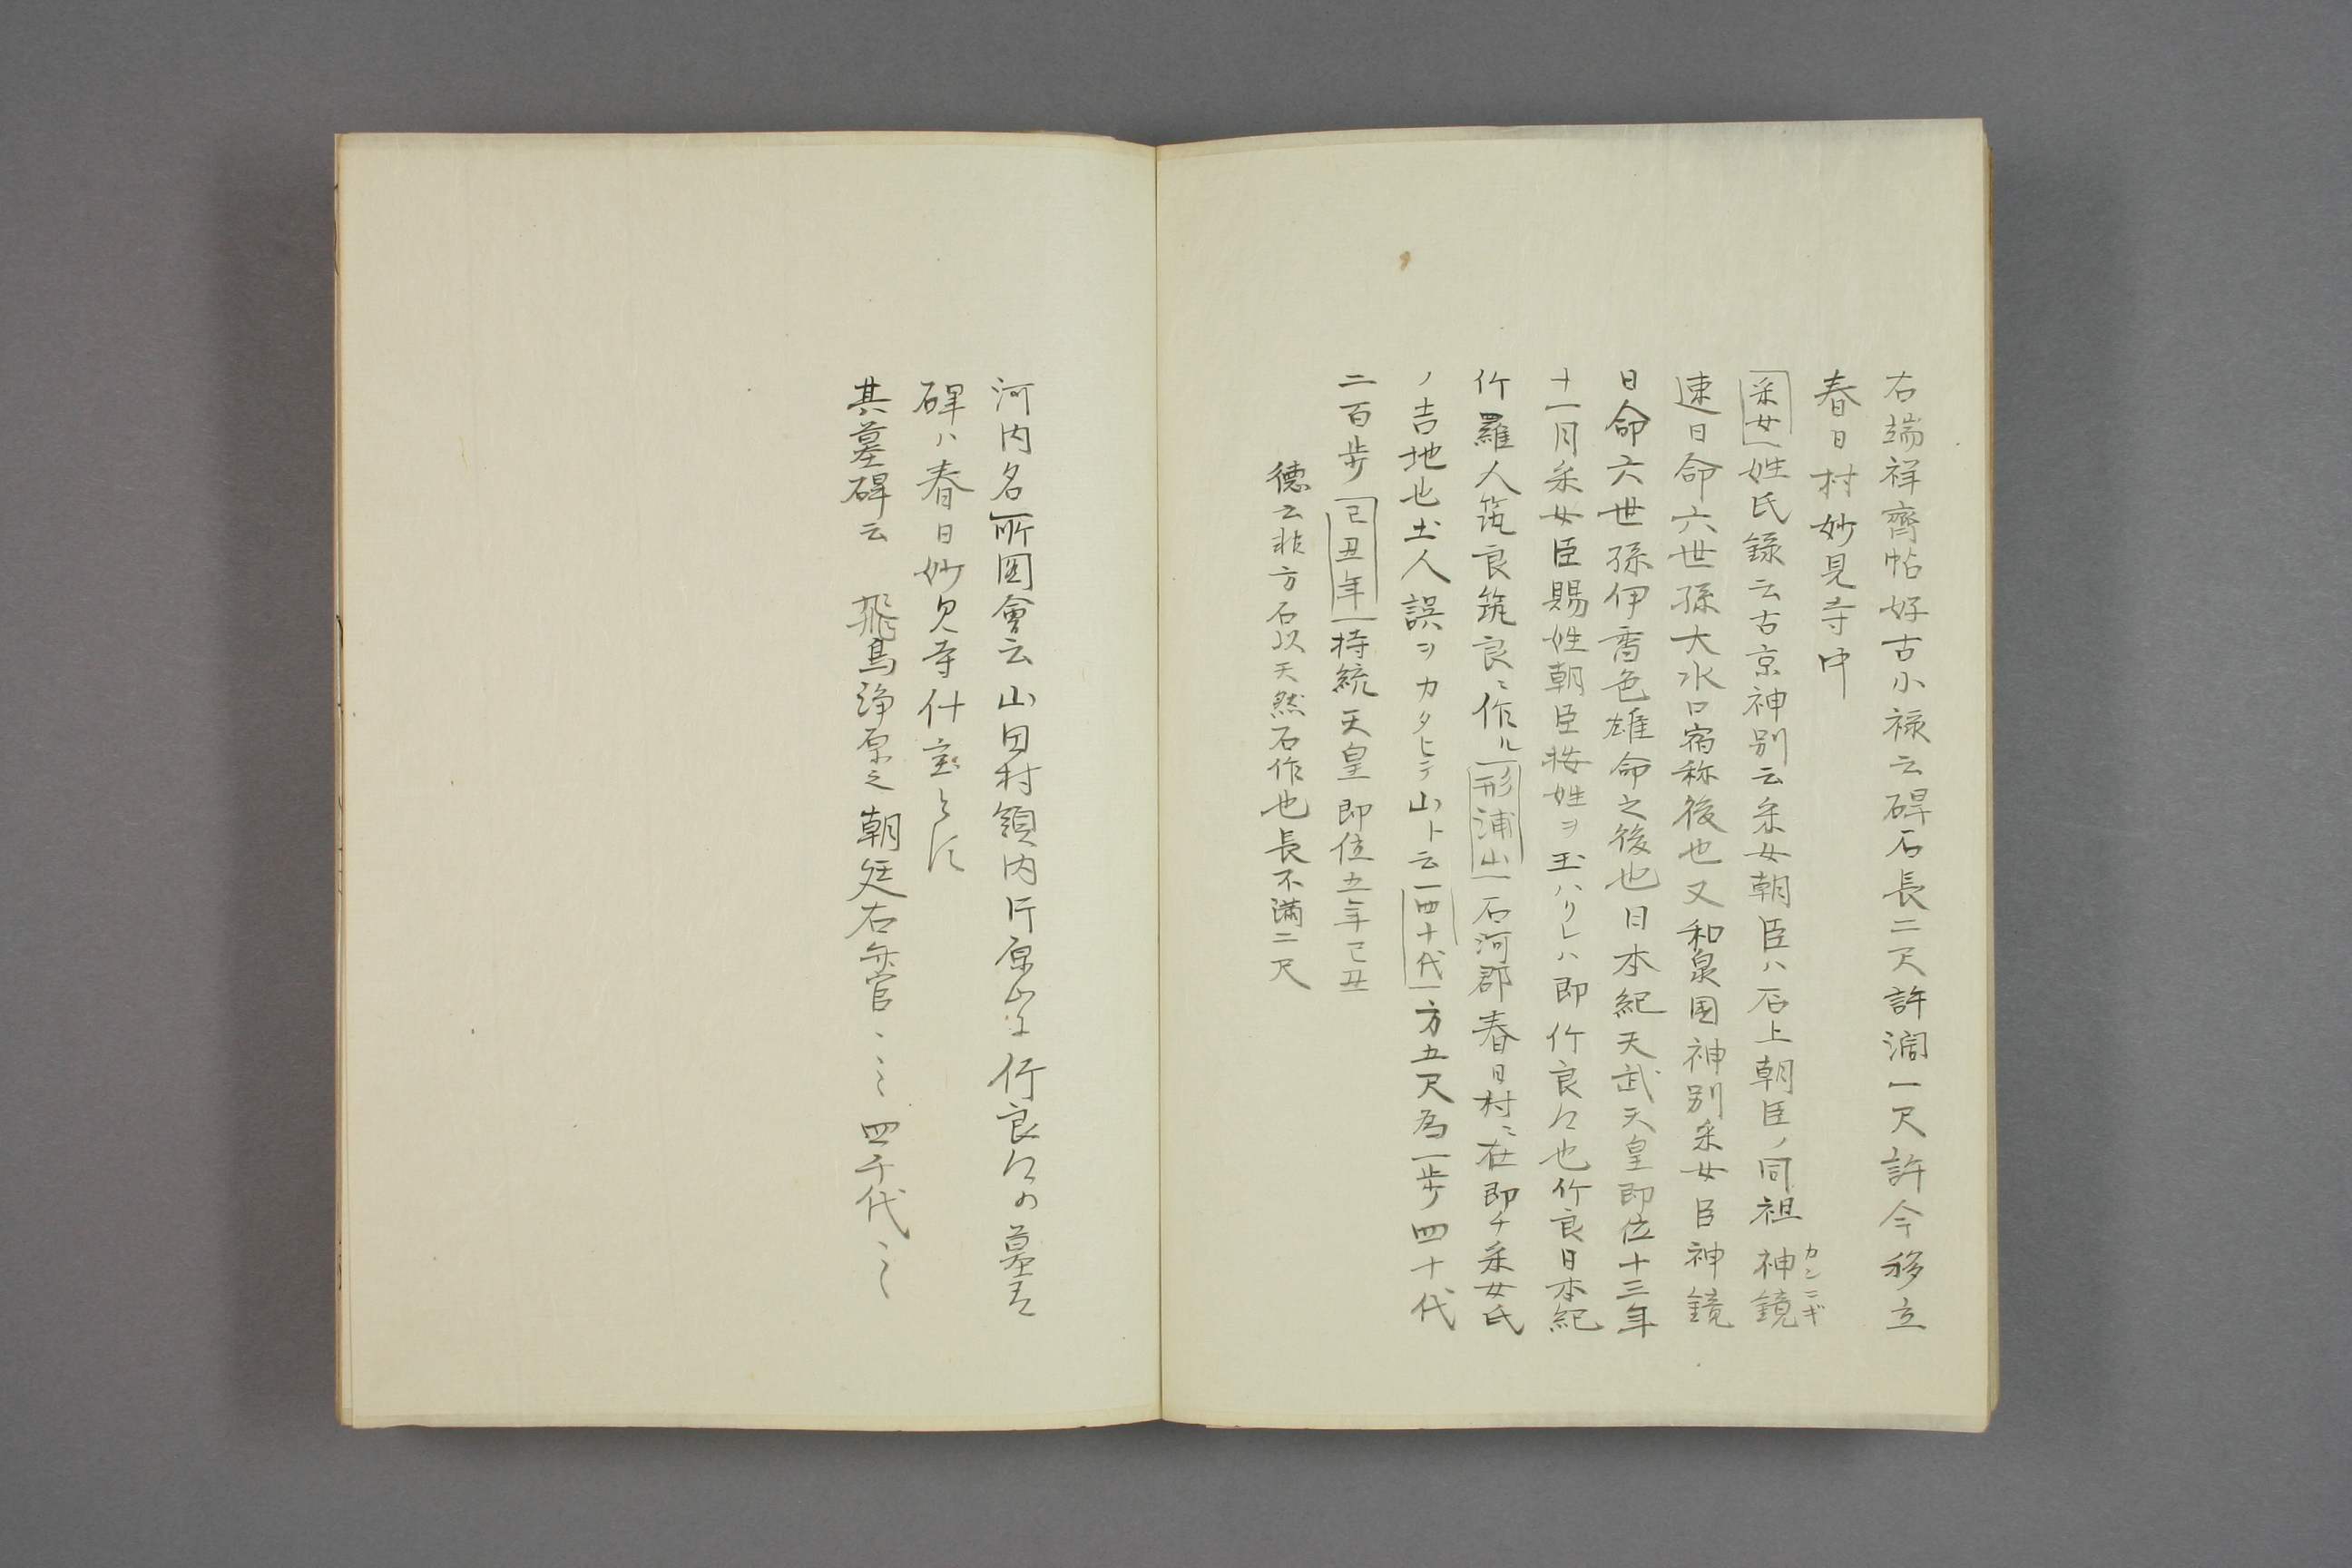 右端祥齊帖好古小禄云碑石長二尺許濶一尺許今移立
春日村妙見寺中
采女姓氏録云古京神別云采女朝臣ハ石上朝臣ノ同祖神鏡カンニギ
速日命六世孫大水口宿祢後也又和泉国神別采女臣神鏡
日命六世孫伊香色雄命之後也日本紀天武天皇即位十三年
十一月采女臣賜姓朝臣按姓ヲ玉ハリシハ即竹良也竹良日本紀
竹羅人筑良筑良ニ作ル形浦山石河郡春日村ニ在即チ采女氏
ノ吉地也土人誤ヲカタヒテ山ト云四十代方五尺為一歩四十代
二百歩己丑年持統天皇即位五年己丑
徳云非方石以天然石作也長不満二尺
河内名所図會云山田村領内片原山に竹良の墓
碑ハ春日妙見寺什宝とす
其墓碑云 飛鳥浄原之朝廷右弁官ミミ四千代ミ